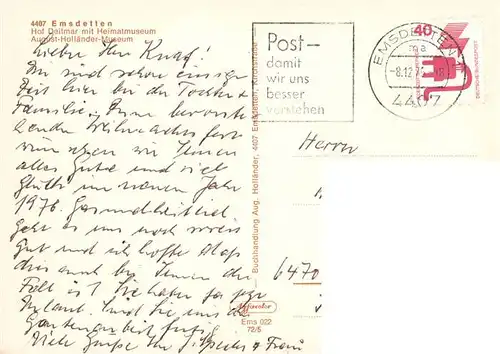 4407 Emsdetten
Hof Deitmar mit Heimatmuseum
August-Holländer-Museum
Lieber Herr Knaf!
Wir sind schon einige
Zeit hier bei der Tochter &
Familie. Zum bevorste-
henden Weihnachtsfest
wünschen wir Ihnen
alles Gute und viel
Glück im neuen Jahr
1976. Gesundheitlich
geht es uns noch
gut und ich hoffe daß
dies auch bei Ihnen der
Fall ist. Sie haben ja
Sind Sie mit der
Gartenarbeit fertig
Viele Grüße Ihr & Frau
Buchhandlung Aug. Holländer, 4407 Emsdetten, Kirchstraße
Post-
damit
wir uns
besser
verstehen
EMSDETTEN
ma
-8.12.75
4407
40
DEUTSCHE BUNDESPOST
Herrn
6470
Ems 022
72/5